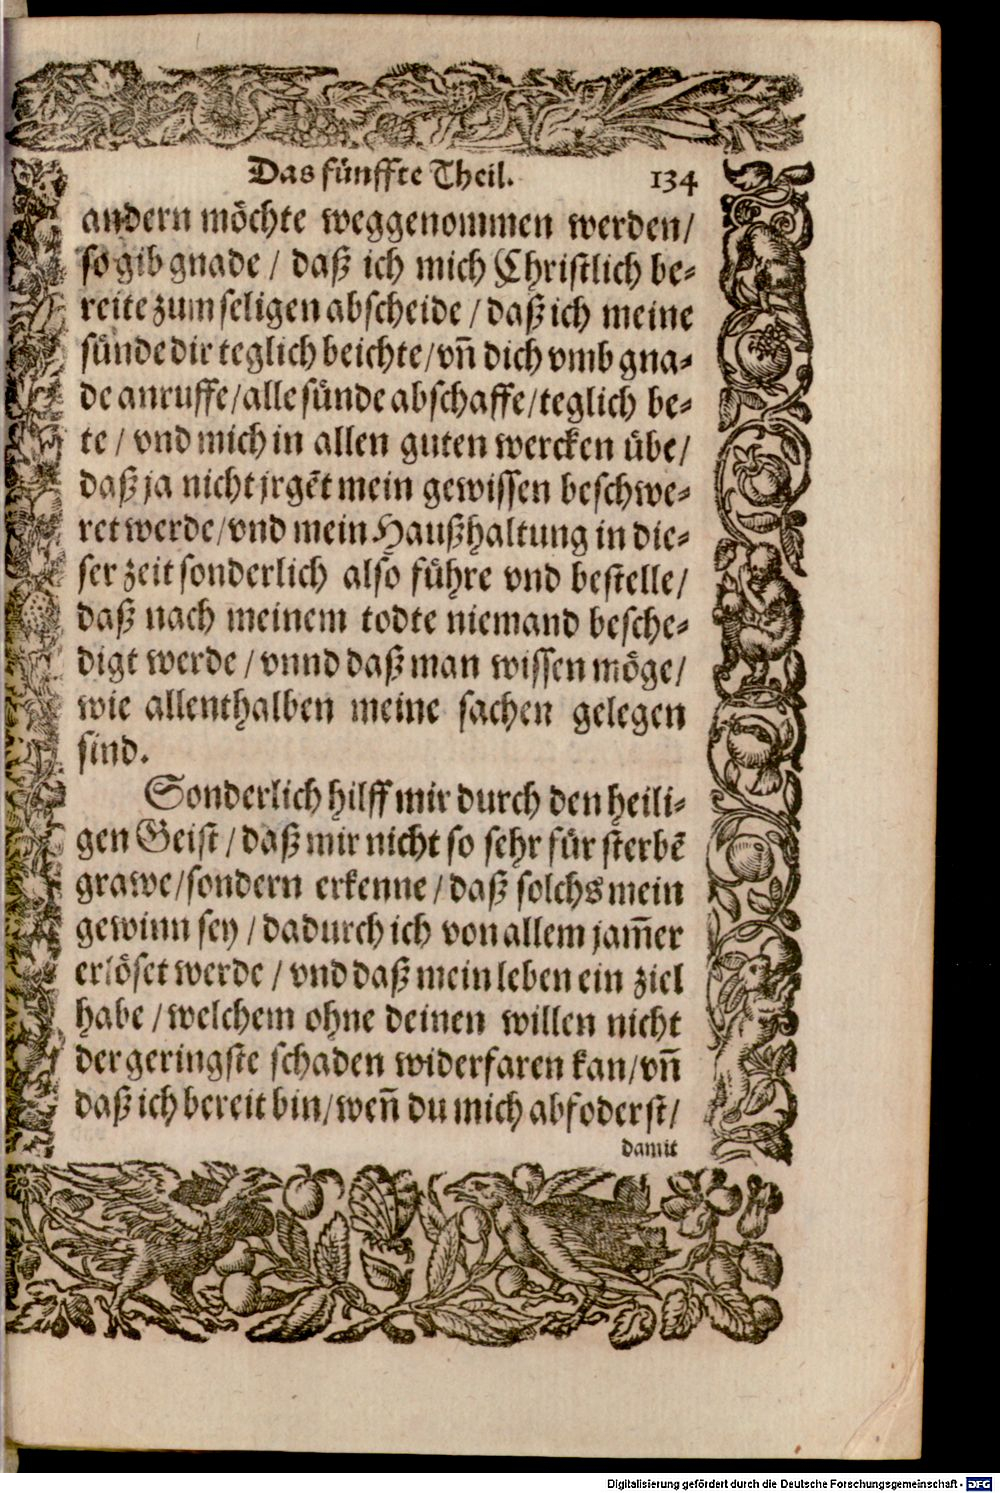 Das fünffte Theil. 134
andern möchte weggenommen werden/
so gib gnade / daß ich mich Christlich be-
reite zum seligen abscheide / daß ich meine
sünde dir teglich beichte/vñ dich vmb gna-
de anruffe/alle sünde abschaffe/teglich be-
te / vnd mich in allen guten wercken übe/
daß ja nicht jrgēt mein gewissen beschwe-
ret werde/vnd mein Haußhaltung in die-
ser zeit sonderlich also führe vnd bestelle/
daß nach meinem todte niemand besche-
digt werde / vnnd daß man wissen möge/
wie allenthalben meine sachen gelegen
sind.
Sonderlich hilff mir durch den heili-
gen Geist / daß mir nicht so sehr für sterbē
grawe/sondern erkenne / daß solchs mein
gewinn sey / dadurch ich von allem jam̄er
erlöset werde / vnd daß mein leben ein ziel
habe / welchem ohne deinen willen nicht
der geringste schaden widerfaren kan/vñ
daß ich bereit bin/ wen̄ du mich abfoderst/
damit
Digitalisierung gefördert durch die Deutsche Forschungsgemeinschaft - DFG